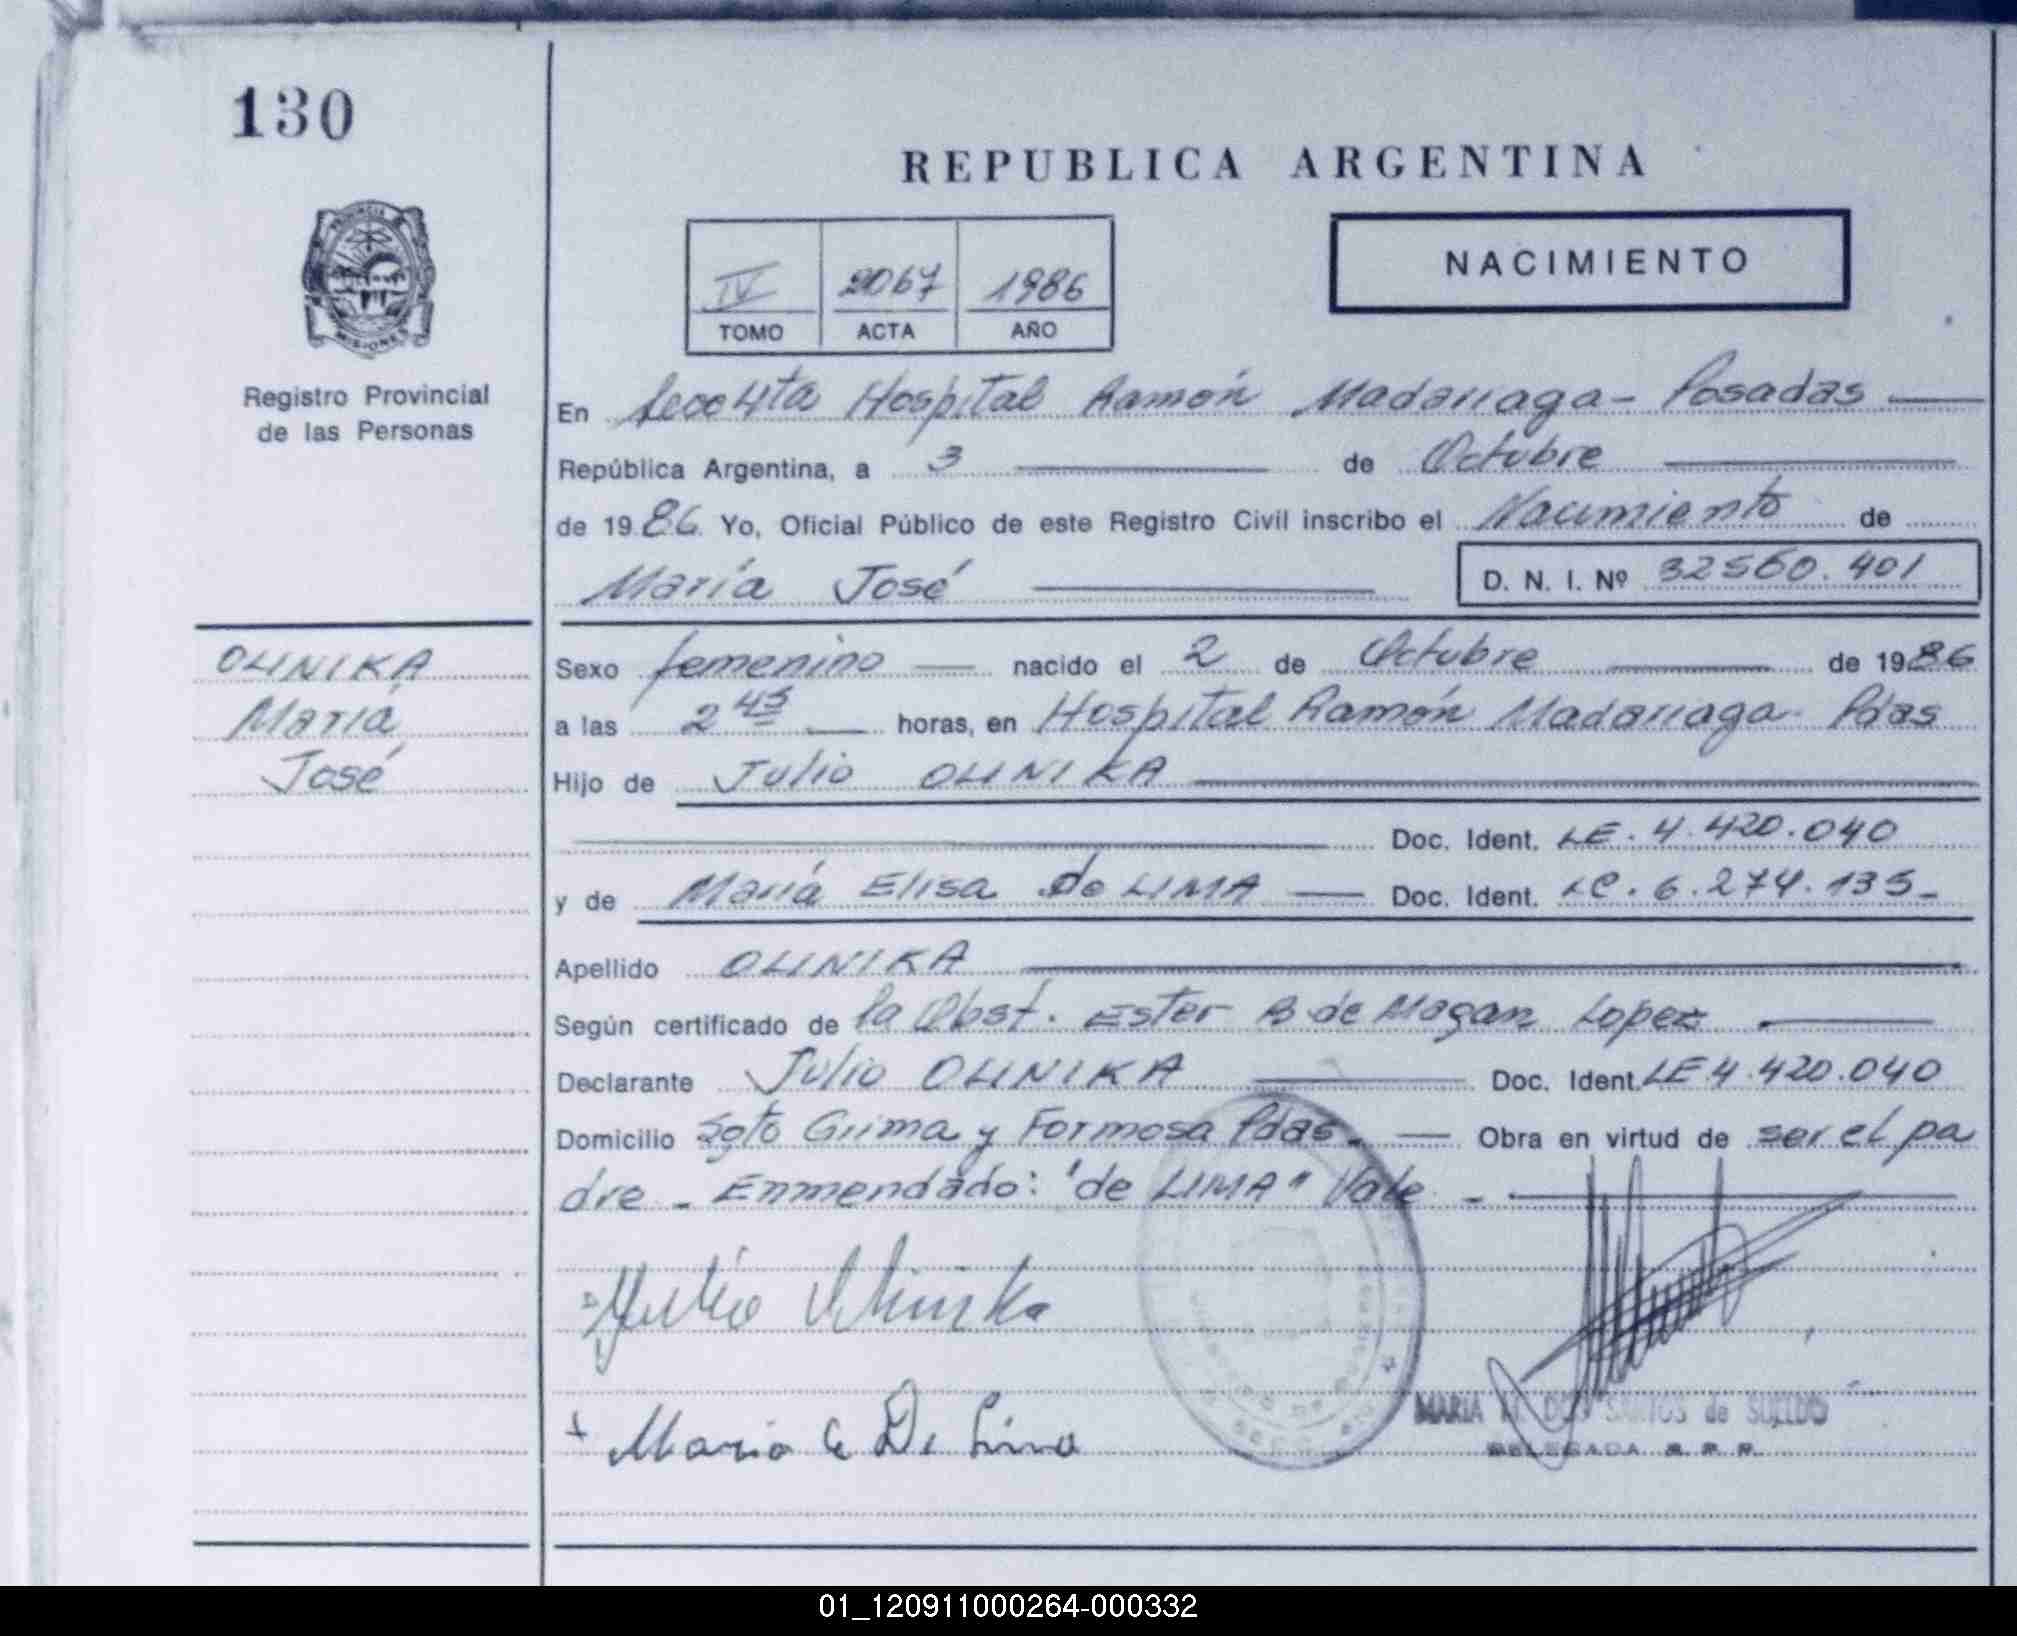 130
REPUBLICA ARGENTINA
NACIMIENTO
IV 2067 1986
TOMO ACTA AÑO
PROVINCIA DE
MISIONES
Registro Provincial
de las Personas
En Secc 4ta Hospital Ramón Madariaga - Posadas
República Argentina, a 3 de Octubre
de 1986. Yo, Oficial Público de este Registro Civil inscribo el Nacimiento de
María José D. N. I. Nº 32560.401
OLINIKA
María
José
Sexo femenino nacido el 2 de Octubre de 1986
a las 2 45 horas, en Hospital Ramón Madariaga Pdas
Hijo de Julio OLINIKA
Doc. Ident. LE. 4.420.040
y de María Elisa de LIMA Doc. Ident. LC. 6.274.135_
Apellido OLINIKA
Según certificado de la Obst. Ester B de Magan Lopez
Declarante Julio OLINIKA Doc. Ident. LE 4.420.040
Domicilio Sgto Grima y Formosa Pdas. Obra en virtud de ser el pa
dre - Enmendado: "de LIMA" Vale -
Julio Olinika
+ Maria E De Lima
MARIA DOS SANTOS de SUELDO
DELEGADA R. P. P.
01_120911000264-000332